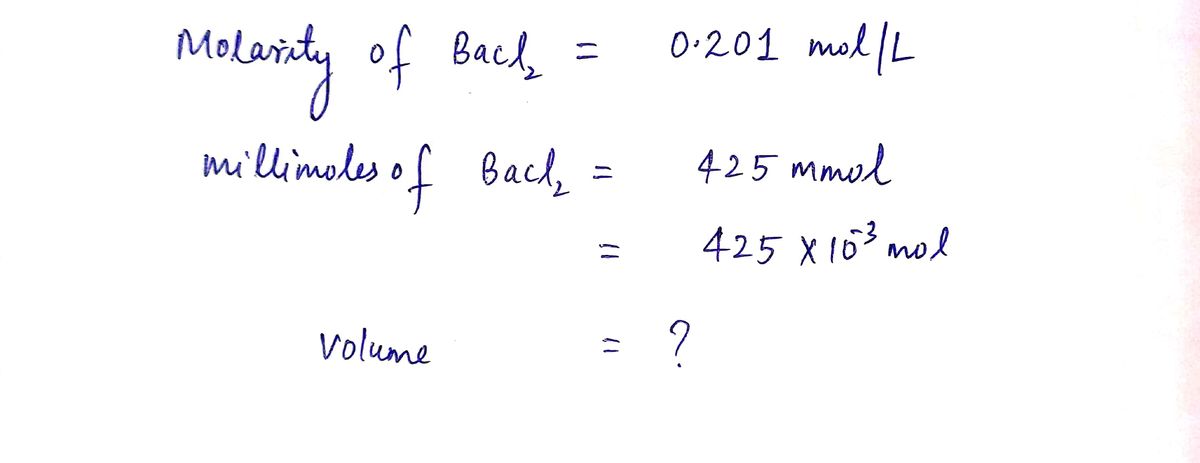 Molarity of BaCl₂ = 0.201 mol/L
millimoles of BaCl₂ = 425 mmol
= 425 × 10⁻³ mol
Volume = ?